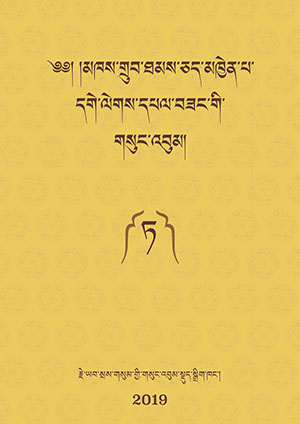 ༄༅། །མཁས་གྲུབ་ཐམས་ཅད་མཁྱེན་པ་
དགེ་ལེགས་དཔལ་བཟང་གི་
གསུང་འབུམ།
ཏ
རྗེ་ཡབ་སྲས་གསུམ་གྱི་གསུང་འབུམ་སྡུད་སྒྲིག་ཁང་།
2019